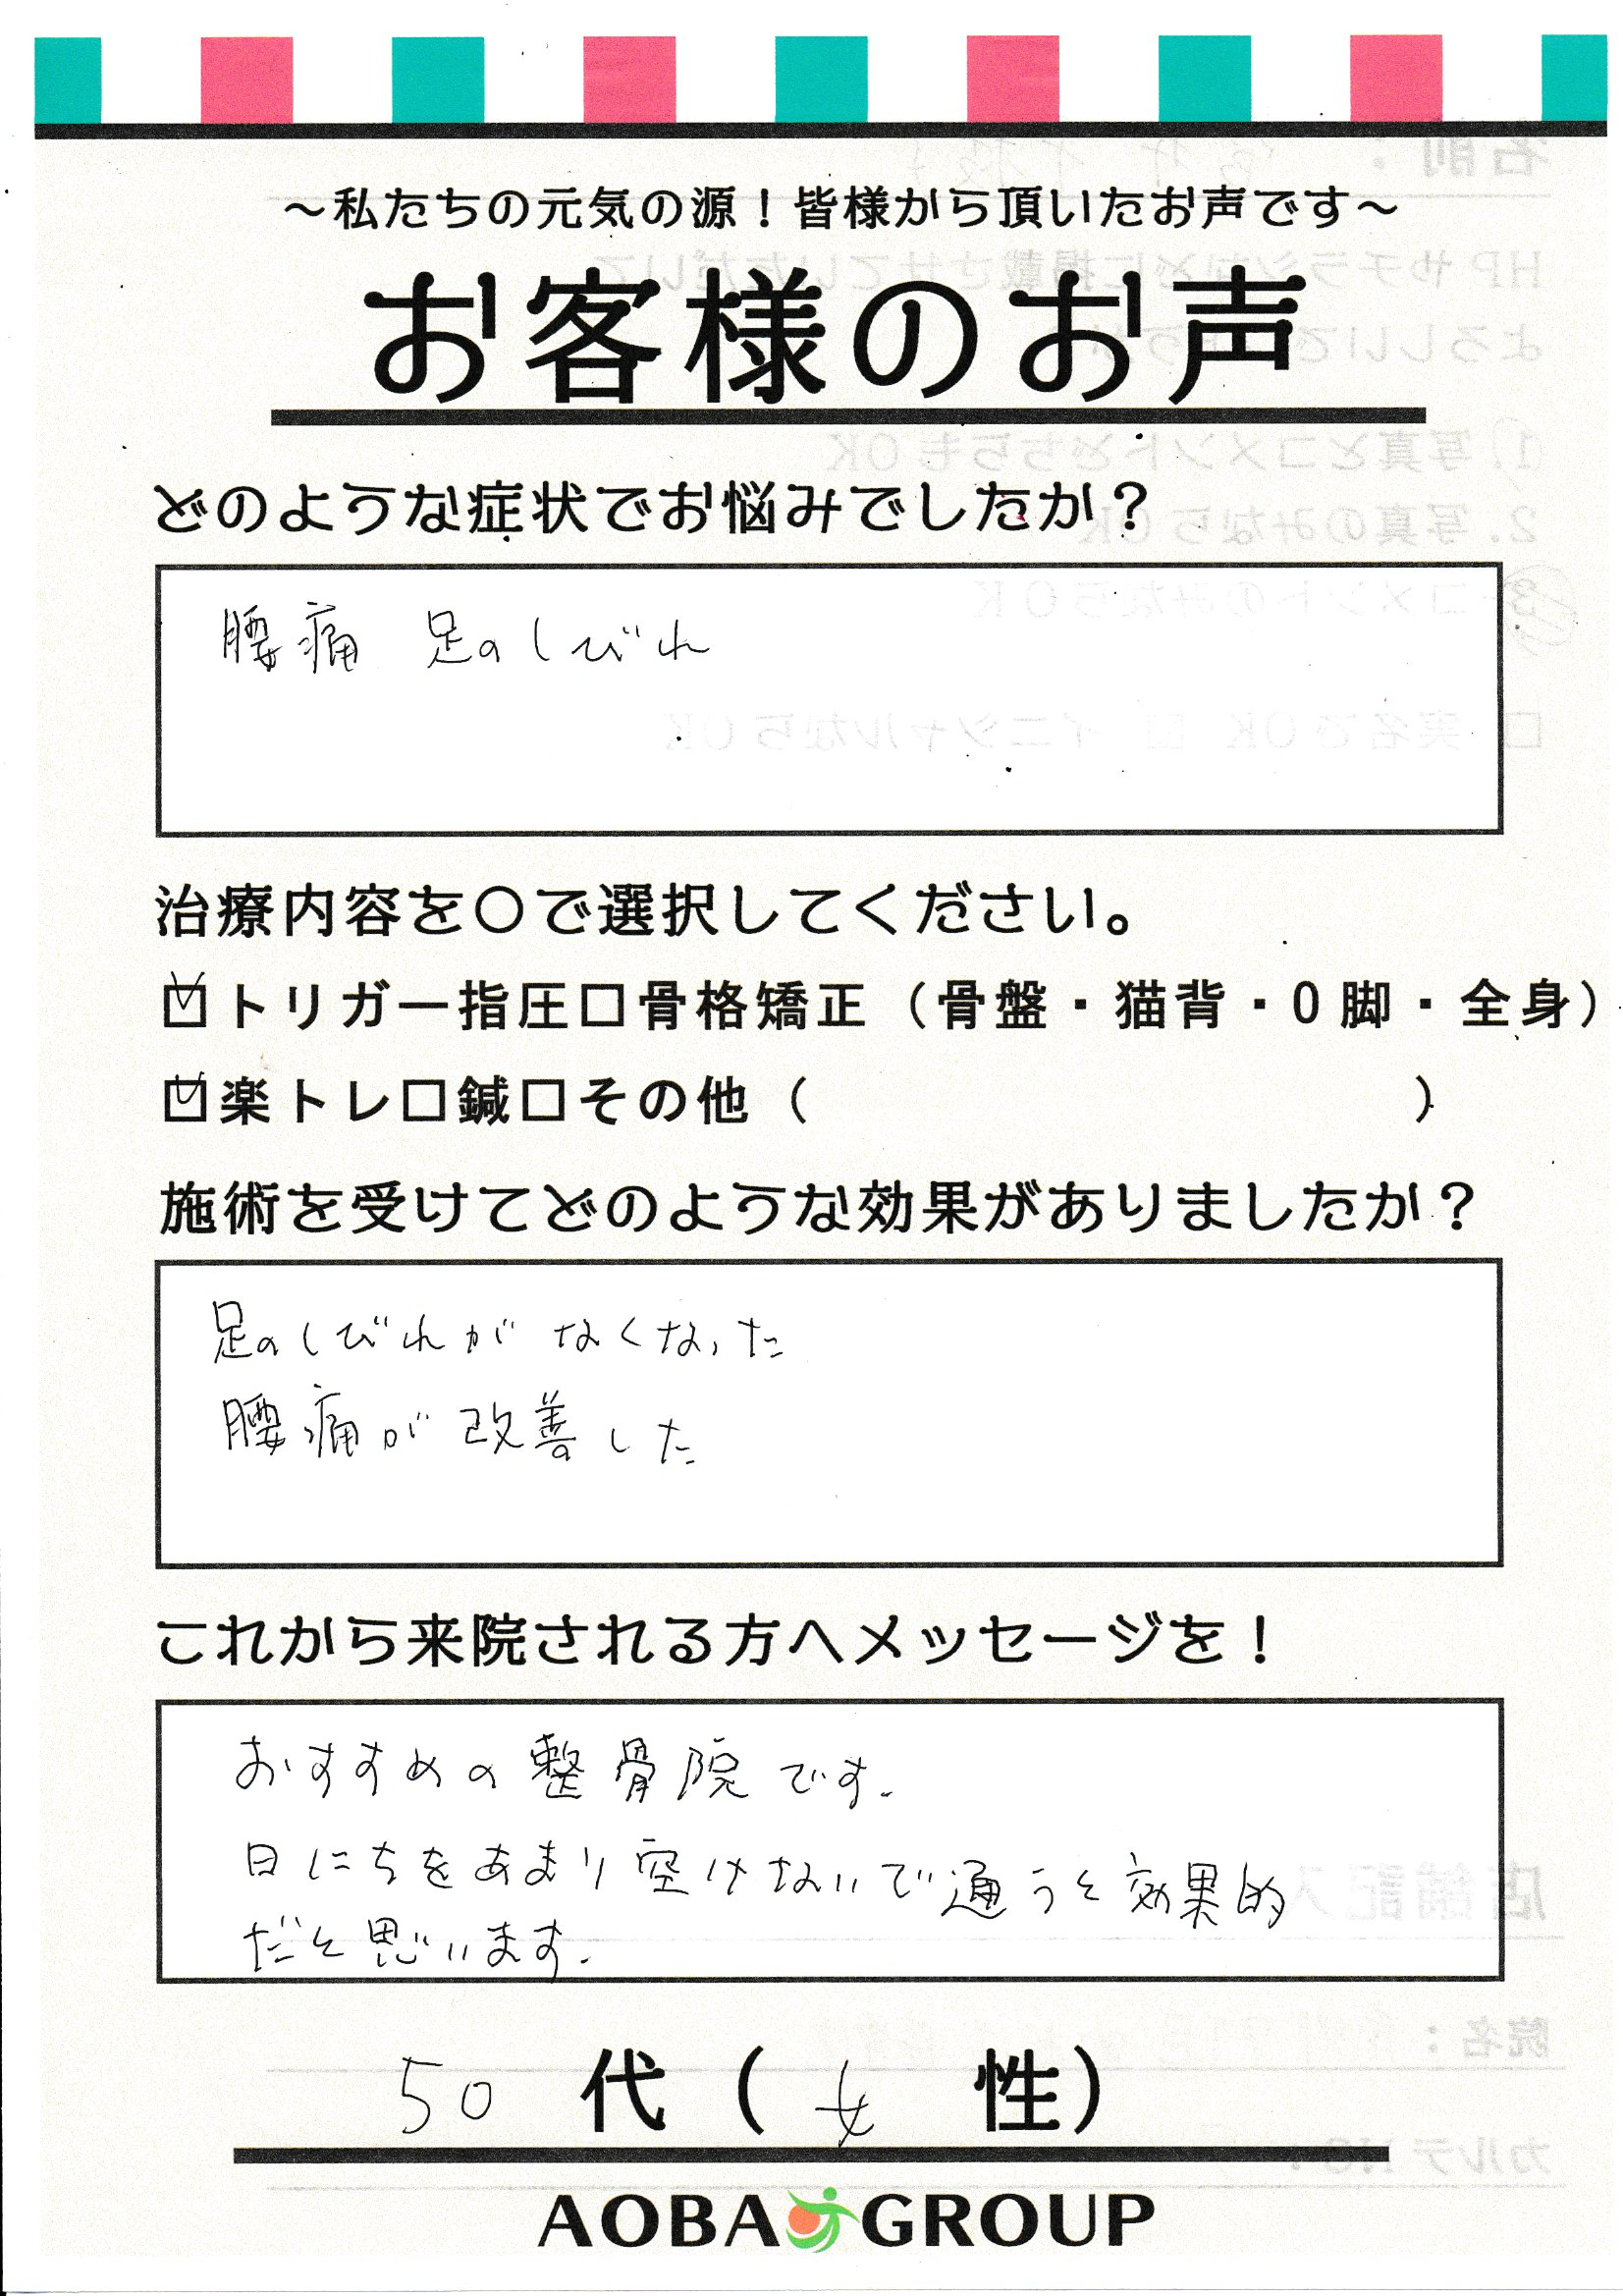 ～私たちの元気の源！皆様から頂いたお声です～
お客様のお声
どのような症状でお悩みでしたか？
腰痛 足のしびれ
治療内容を〇で選択してください。
☑トリガー指圧□骨格矯正（骨盤・猫背・O脚・全身）
☑楽トレ□鍼□その他（ ）
施術を受けてどのような効果がありましたか？
足のしびれが なくなった
腰痛が改善した
これから来院される方へメッセージを！
おすすめの整骨院です.
日にちをあまり空けないで通うと効果的
だと思います.
50 代（女 性）
AOBA GROUP